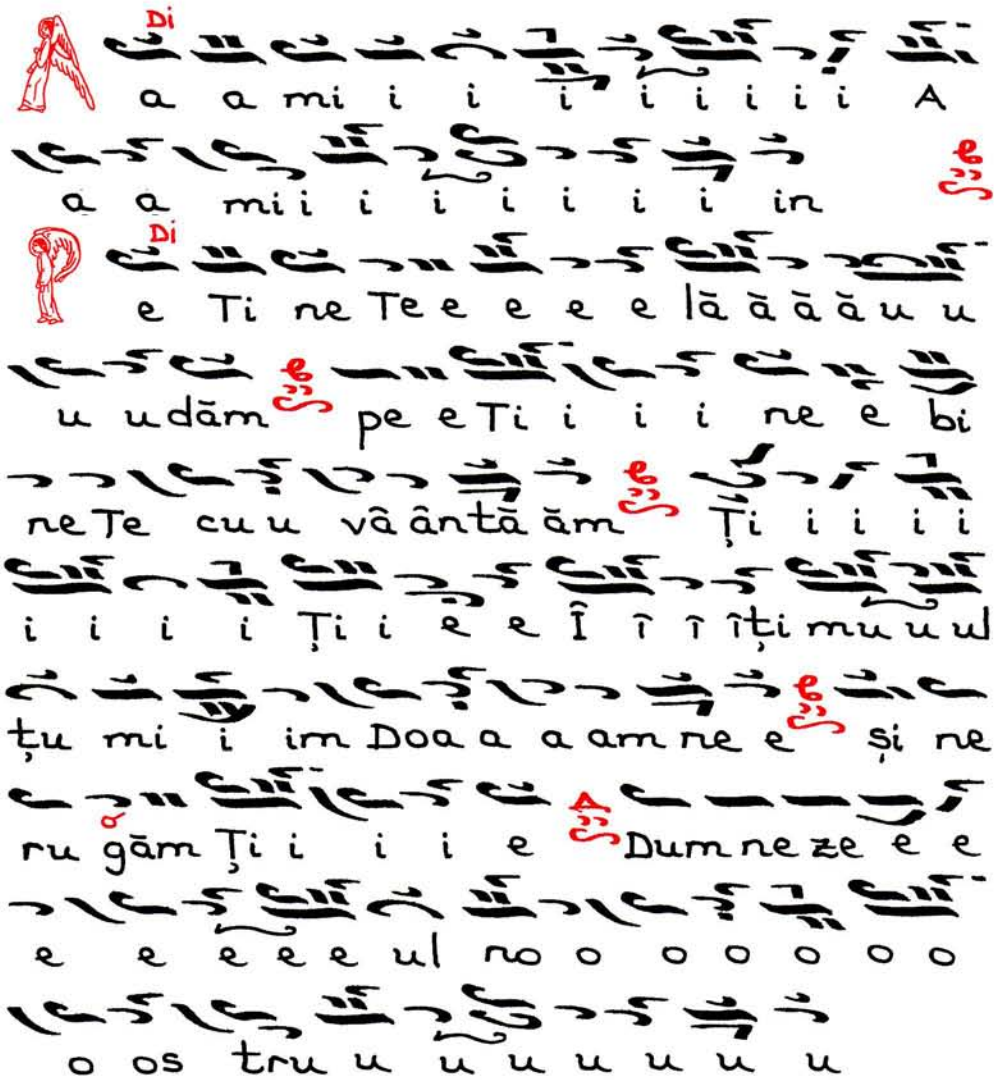 Di
A a a mi i i i i i i i i A
a a mi i i i i i i i in
Di
P e Ti ne Te e e e e lă ă ă ă u u
u u dăm pe e Ti i i i ne e bi
ne Te cu u vâ ântă ăm Ți i i i i
i i i i Ți i e e Î î î îți mu u ul
țu mi i im Doa a a am ne e și ne
ru găm Ți i i i e Dum ne ze e e
e e e e e ul no o o o o o o
o os tru u u u u u u u